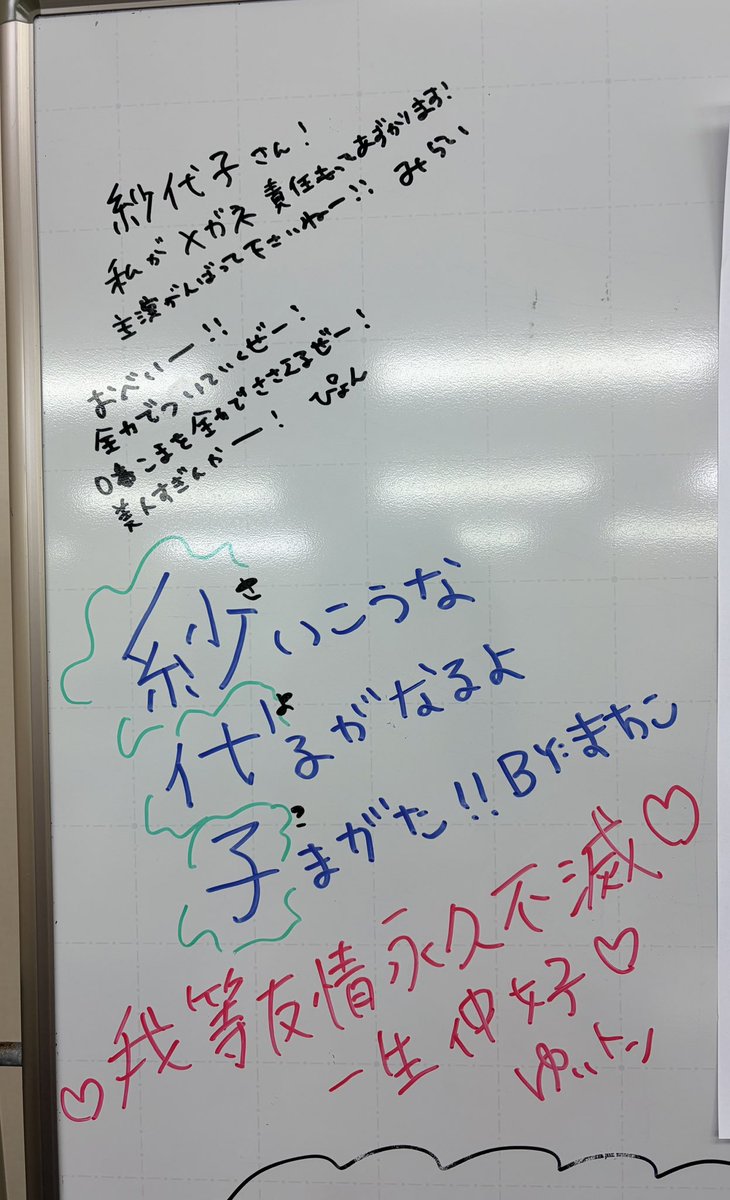 紗代子さん!
私がメガネ責任もってあずかります!
主演がんばって下さいねー!! みらい
おべいー!!
全力でついていくぜー!
0番こまを全力でささえるぜー!
美人すぎんかー! ぴょん
紗さいこうな
代よるがなるよ
子こまがた!! BY:まちこ
我等友情永久不滅♡
♡一生仲好♡
ゆいトン